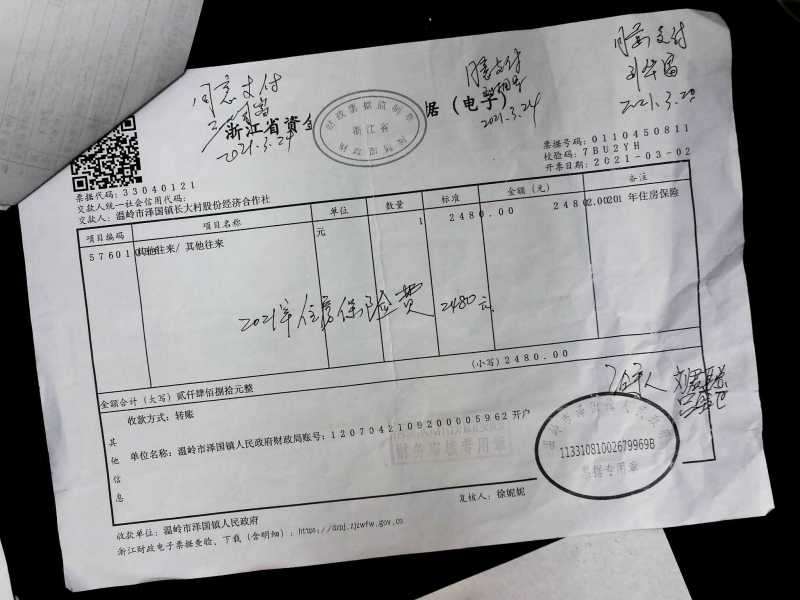 同意支付
2021.3.24
同意支付
2021.3.24
同意支付
2021.3.28
浙江省资金 据（电子）
财政票据监制章
浙江省
票据代码：33040121
票据号码：0110450811
交款人统一社会信用代码：
校验码：7BU2YH
交款人：温岭市泽国镇长大村股份经济合作社
开票日期：2021-03-02
项目编码 项目名称 单位 数量 标准 金额（元） 备注
576010 其他往来/其他往来 元 1 2480.00 2480.00 2021年住房保险
2021年住房保险费 2480元
金额合计（大写）贰仟肆佰捌拾元整 （小写）2480.00
收款方式：转账
其他信息
单位名称：温岭市泽国镇人民政府财政局账号：1207042109200005962 开户
财务审核专用章
113310810026799698
票据专用章
收款单位：温岭市泽国镇人民政府
复核人：徐妮妮
浙江财政电子票据查验、下载（含明细）：https://dzpj.zjzwfw.gov.cn